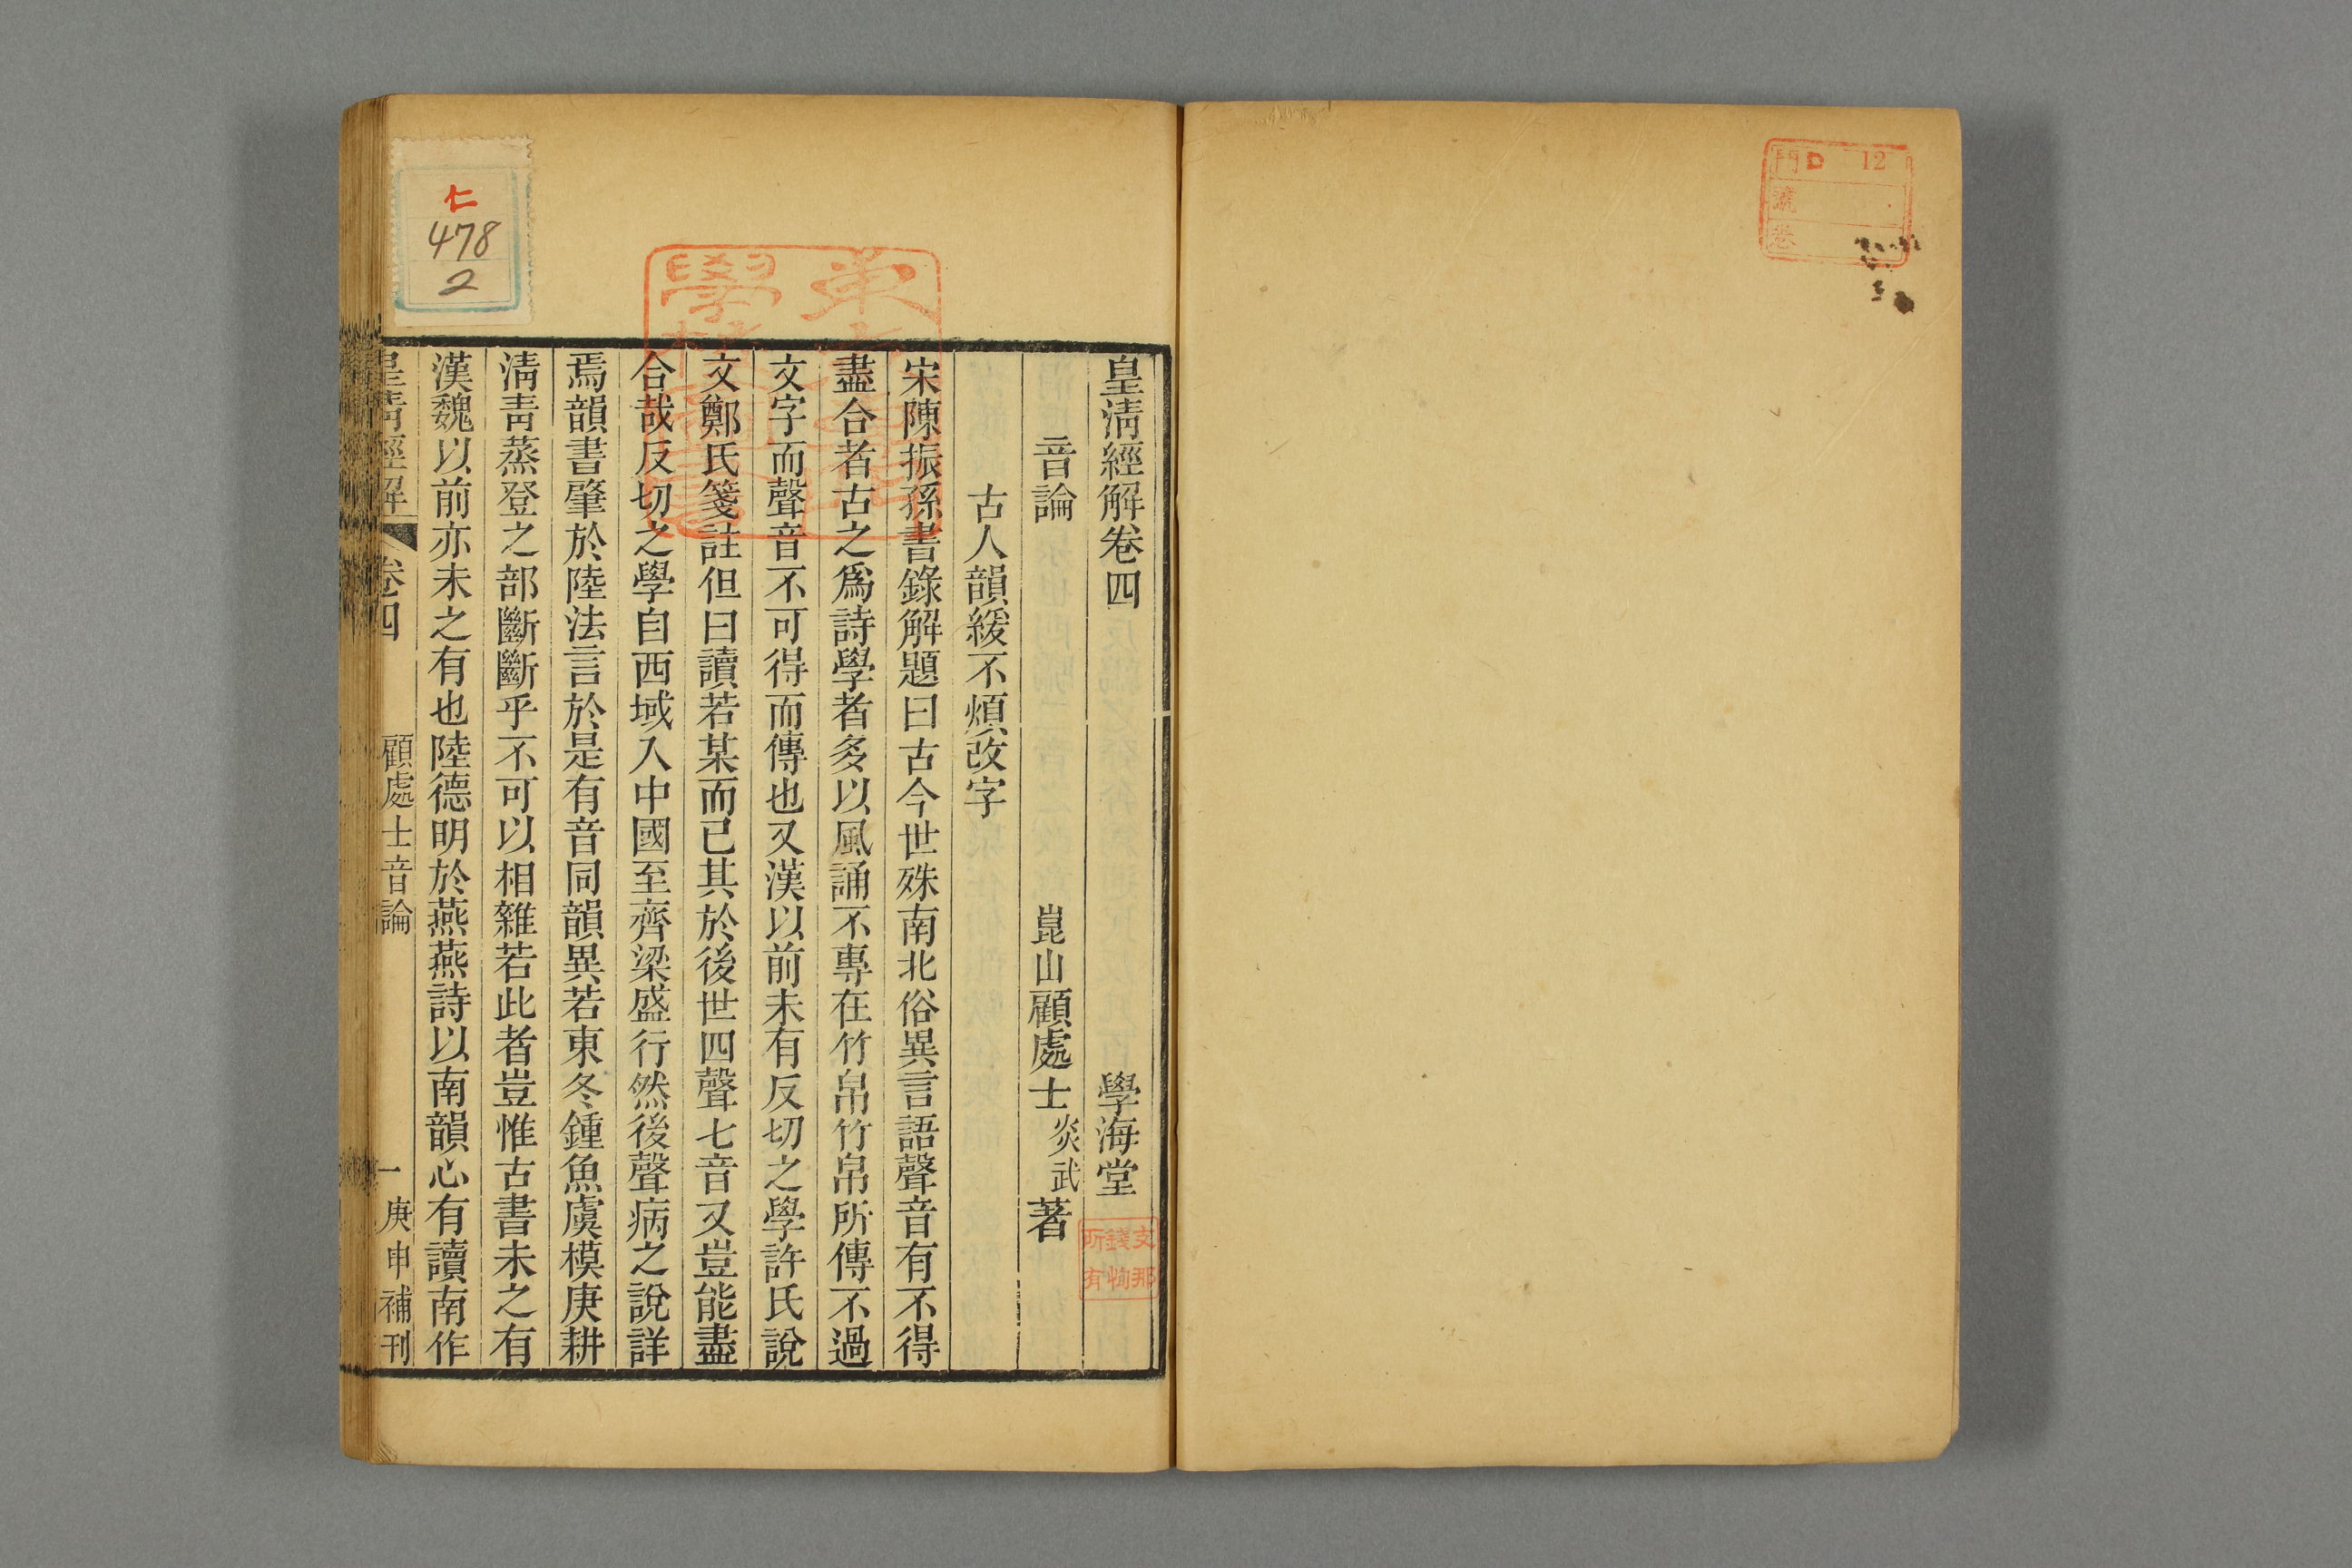 門 D 12
號
卷
皇清經解卷四 學海堂
支那
錢恂
所有
音論 崑山顧處士炎武著
古人韻緩不煩改字
宋陳振孫書錄解題曰古今世殊南北俗異言語聲音有不得
盡合者古之爲詩學者多以風誦不專在竹帛竹帛所傳不過
文字而聲音不可得而傳也又漢以前未有反切之學許氏說
文鄭氏箋註但曰讀若某而已其於後世四聲七音又豈能盡
合哉反切之學自西域入中國至齊梁盛行然後聲病之說詳
焉韻書肇於陸法言於是有音同韻異若東冬鍾魚虞模庚耕
淸靑蒸登之部斷斷乎不可以相雜若此者豈惟古書未之有
漢魏以前亦未之有也陸德明於燕燕詩以南韻心有讀南作
皇清經解 卷四 顧處士音論 一 庚申補刊
仁
478
2